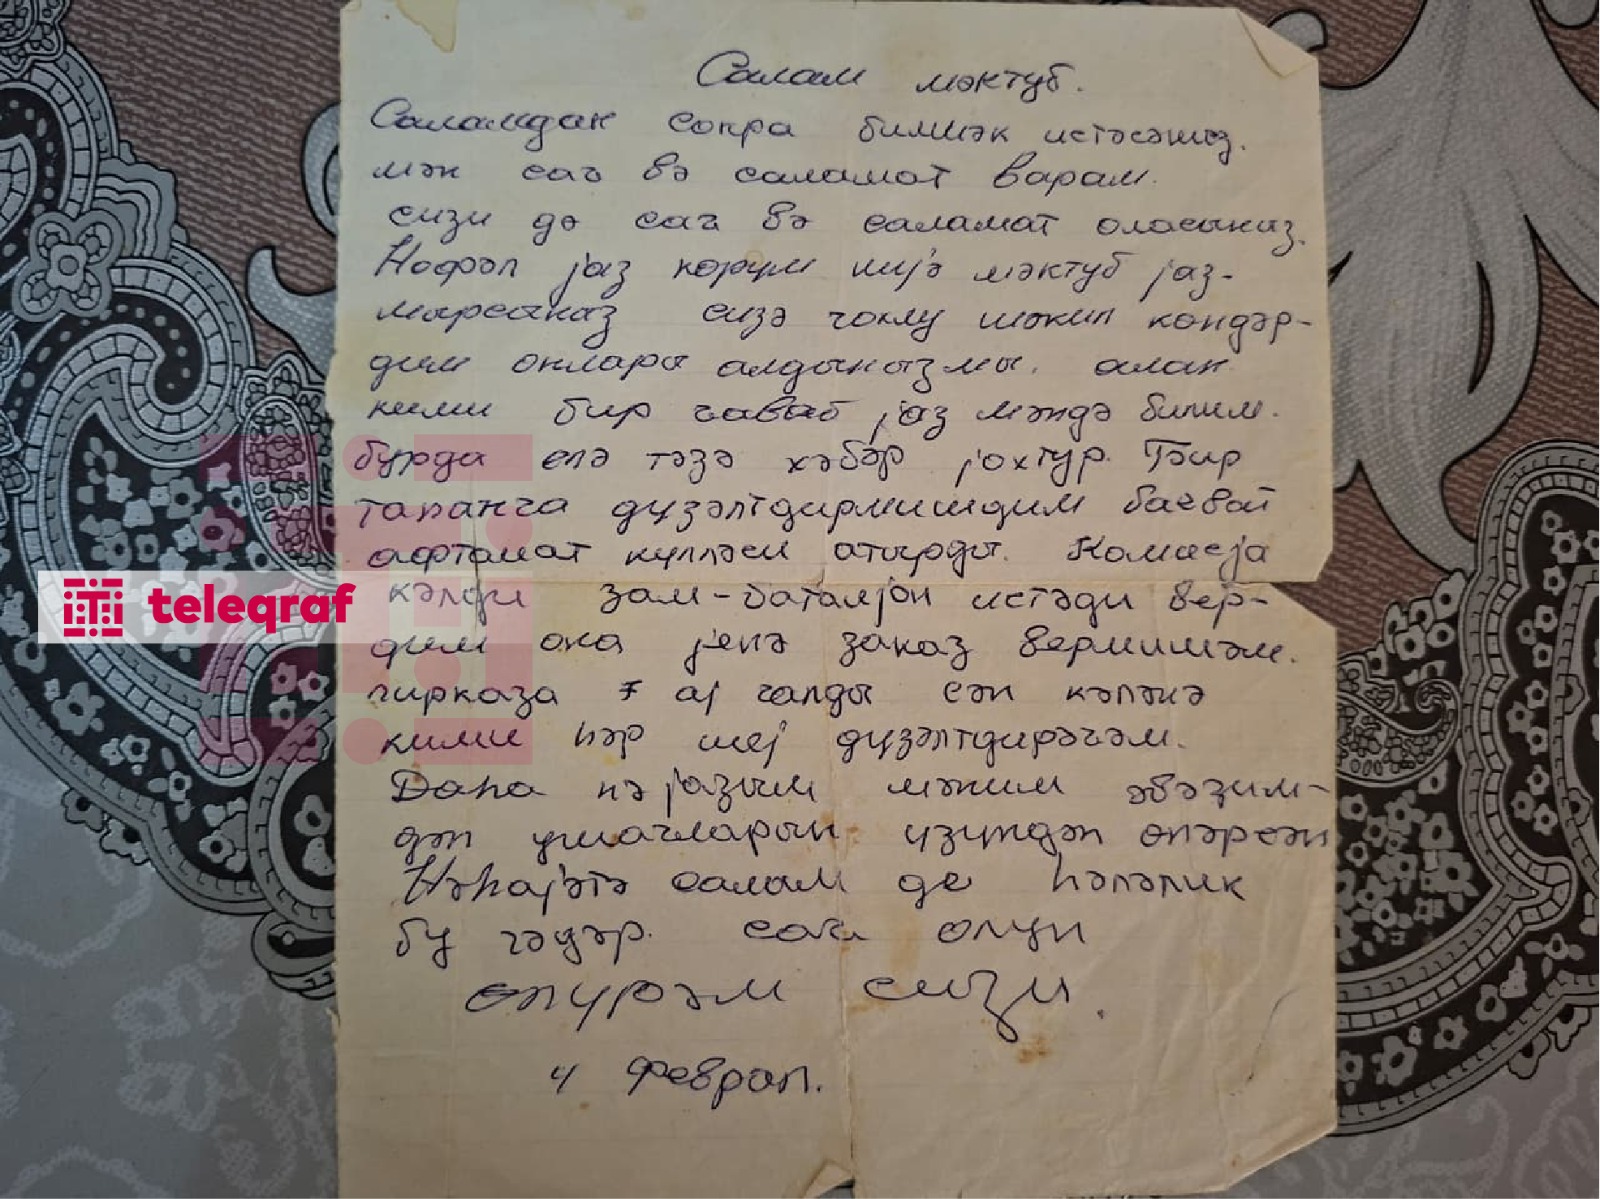 Салам мәктуб.
Саламдан сонра билмәк истәсәниз.
мән сағ вә саламат варам.
сизи дә сағ вә саламат оласыныз.
Нофәл јаз көрүм нијә мәктуб јаз-
мырсыныз сизә чохлу шәкил көндәр-
дим онлары алдынызмы. алан
кими бир чаваб јаз мәндә билим.
бурда елә тәзә хәбәр јохтур. Бир
тапанча дүзәлтдирмишдим баевой
афтомат күлләси атырды. Комисја
кәлди зам-баталјон истәди вер-
дим она јенә заказ вермишәм.
приказа 7 ај галды сән кәләнә
кими һәр шеј дүзәлтдирәчәм.
Даһа нә јазым мәним әвәзим-
дән ушагларын үзүндән өпәрсән
Нәһајәтә салам де һәләлик
бу гәдәр. сағ олун
өпүрәм сизи.
4 феврал.
teleqraf